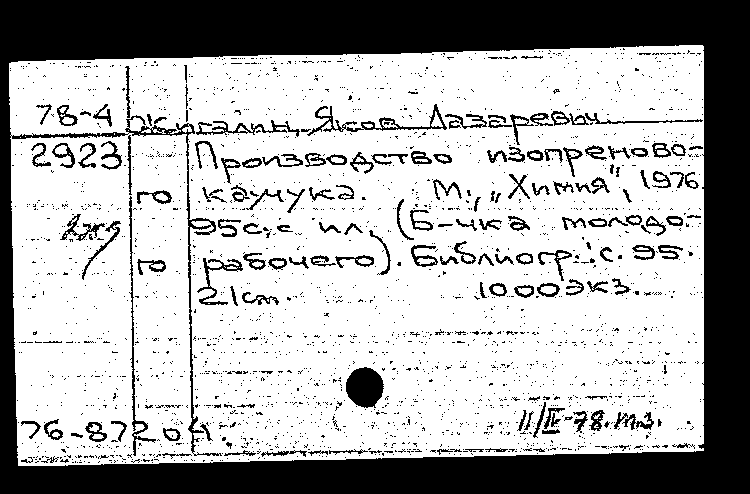 78-4 Жигалин, Яков Лазаревич.
2923 Производство изопреново-
го каучука. М., „Химия", 1976.
2экз 95с., с ил. (Б-чка молодо-
го рабочего). Библиогр.: с. 95.
21cm. 1000экз.
II/IV-78. м.з.
76-87204.